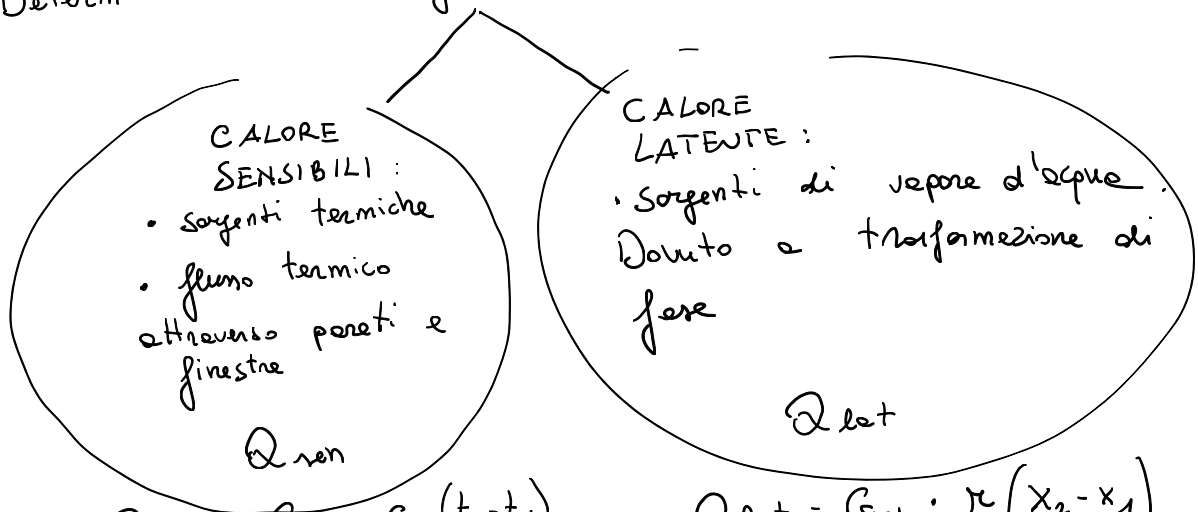 CALORE
SENSIBILI :
• sorgenti termiche
• flusso termico
attraverso pareti e
finestre
Qsen
CALORE
LATENTE :
• Sorgenti di vapore d'acqua.
Dovuto a trasformazione di
fase
Qlat